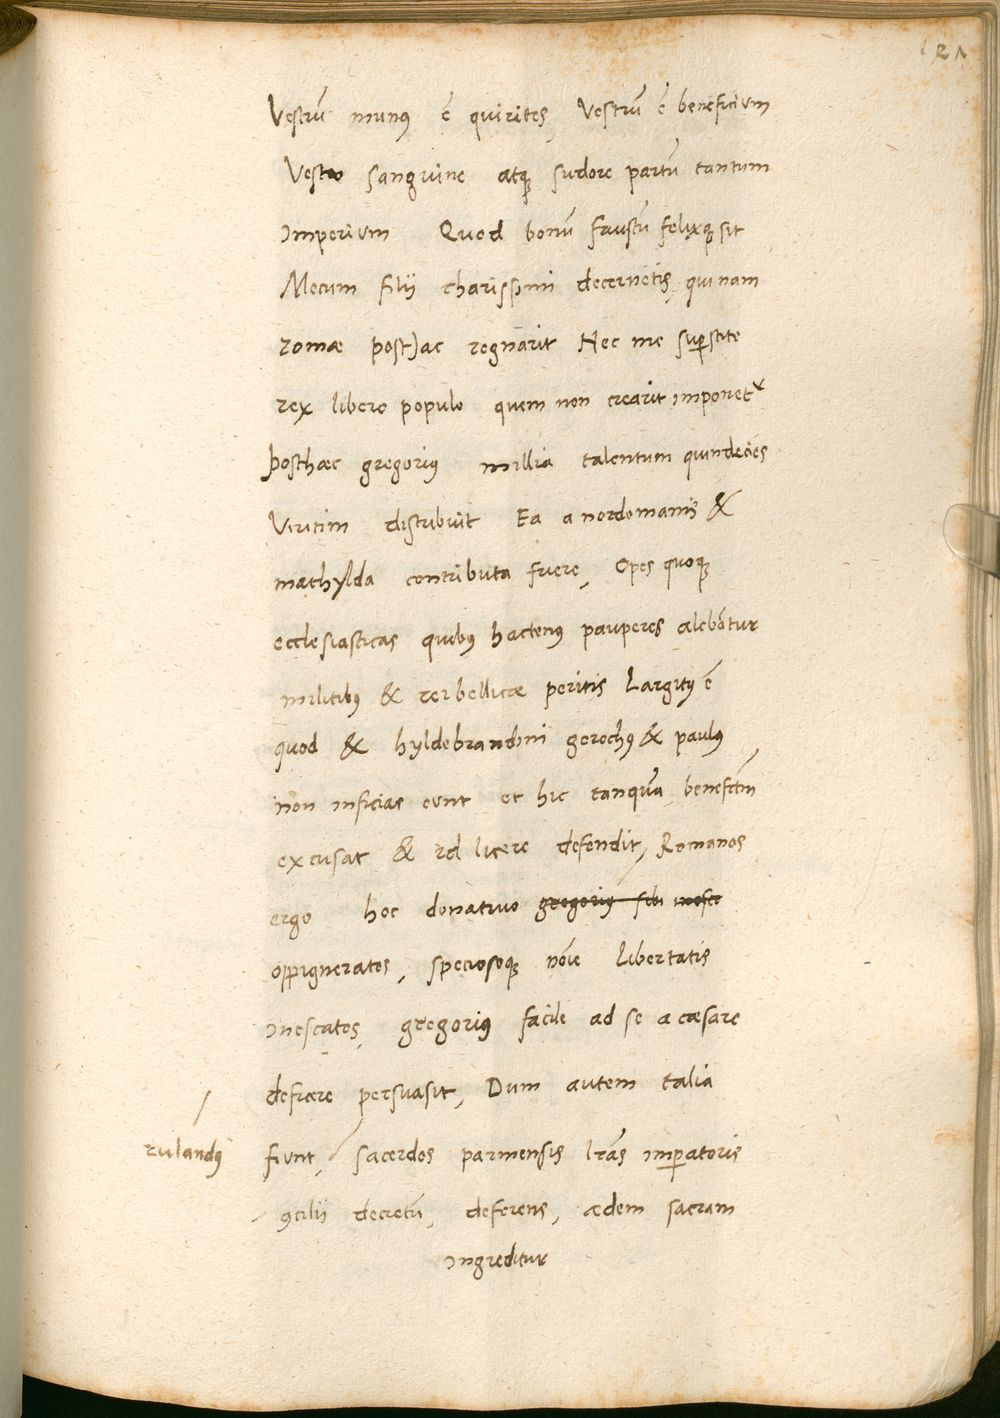 121
Vestrū munus ē quirites, Vestrū ē beneficium
Vestro sanguine atq; sudore partū tantum
imperium Quod bonū faustū felixq; sit
Mecum filij charissimi decernetis, quinam
romæ posthac regnarit Nec me superstite
rex libero populo quem non crearit imponet᷑
posthæc gregorius millia talentum quindecies
Viritim distribuit Ea a nordomanis &
mathylda contributa fuere, Opes quoq;
ecclesiasticas quibus hactenus pauperes alebātur
militibus & rei bellicæ peritis Largitus ē
quod & hyldebrandini gerochus & paulus
non inficias eunt et hic tanquā benefactm̄
excusat & id licere defendit, Romanos
ergo hoc donativo gregorius sibi
oppigneratos, speciosoq; nōīe libertatis
inescatos, gregorius facile ad se a cæsare
deficere persuasit, Dum autem talia
rulandus
fiunt, sacerdos parmensis lr̄as imperatoris
ↄcilij decretū, deferens, ædem sacram
ingreditur